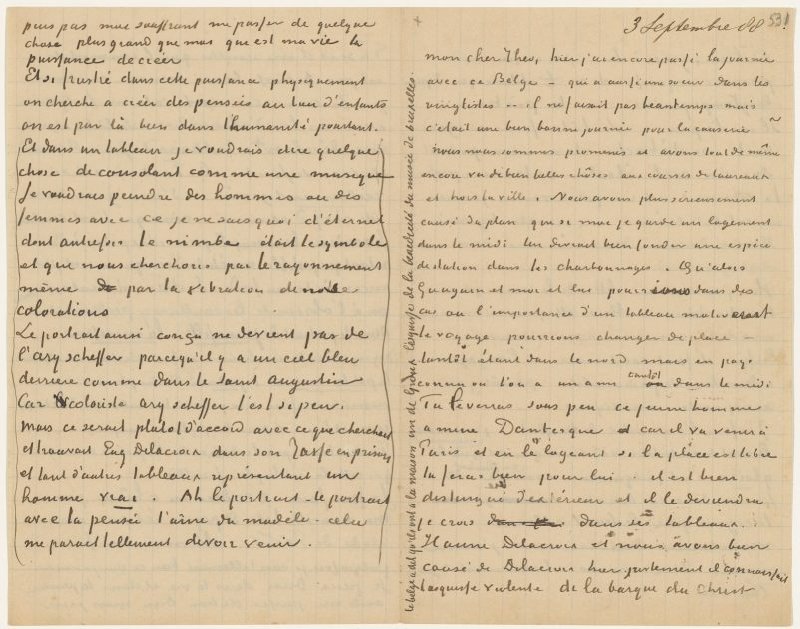 puis pas moi souffrant me passer de quelque
chose plus grand que moi qui est ma vie la
puissance de créer
Et si frustré dans cette puissance physiquement
on cherche a créer des pensées au lieu d'enfants
on est par là bien dans l'humanité pourtant.
Et dans un tableau je voudrais dire quelque
chose de consolant comme une musique
Je voudrais peindre des hommes ou des
femmes avec ce je ne sais quoi d'éternel
dont autrefois le nimbe était le symbole
et que nous cherchons par le rayonnement
même par la vibration de nos
colorations
Le portrait ainsi conçu ne devient pas de
l'ary scheffer parcequ'il y a un ciel bleu
derriere comme dans le saint augustin
Car coloriste ary scheffer l'est si peu.
Mais ce serait plutot d'accord avec ce que cherchait
et trouvait Eug Delacroix dans son Tasse en prison
et tant d'autres tableaux représentant un
homme vrai. Ah le portrait – le portrait
avec la pensée l'âme du modèle – cela
me parait tellement devoir venir.
3 Septembre 88
531
mon cher Theo, hier j'ai encore passé la journée
avec ce Belge – qui a aussi une soeur dans les
vingtistes – il ne faisait pas beau temps mais
c'était une bien bonne journée pour la causerie
nous nous sommes promenés et avons tout de même
encore vu de bien belles chôses aux courses de taureaux
et hors la ville. Nous avons plus serieusement
causé du plan que si moi je garde un logement
dans le midi lui devrait bien fonder une espèce
de station dans les charbonnages. Qu'alors
Gauguin et moi et lui pourrions dans des
cas ou l'importance d'un tableau motiverait
le voyage pourrions changer de place –
tantôt étant dans le nord mais en pays
connu ou l'on a un ami tantôt dans le midi
Tu le verras sous peu ce jeune homme
a mine Dantesque car il va venir à
Paris et en le logeant si la place est libre
tu feras bien pour lui. il est bien
distingué d'exterieur et il le deviendra
je crois dans ses tableaux.
Il aime Delacroix et nous avons bien
causé de Delacroix hier justement il connaissait
l'esquisse violente de la barque du Christ
le belge a dit qu'ils ont a la maison un de Groux l'esquisse de la benedicité du musée de bruxelles.